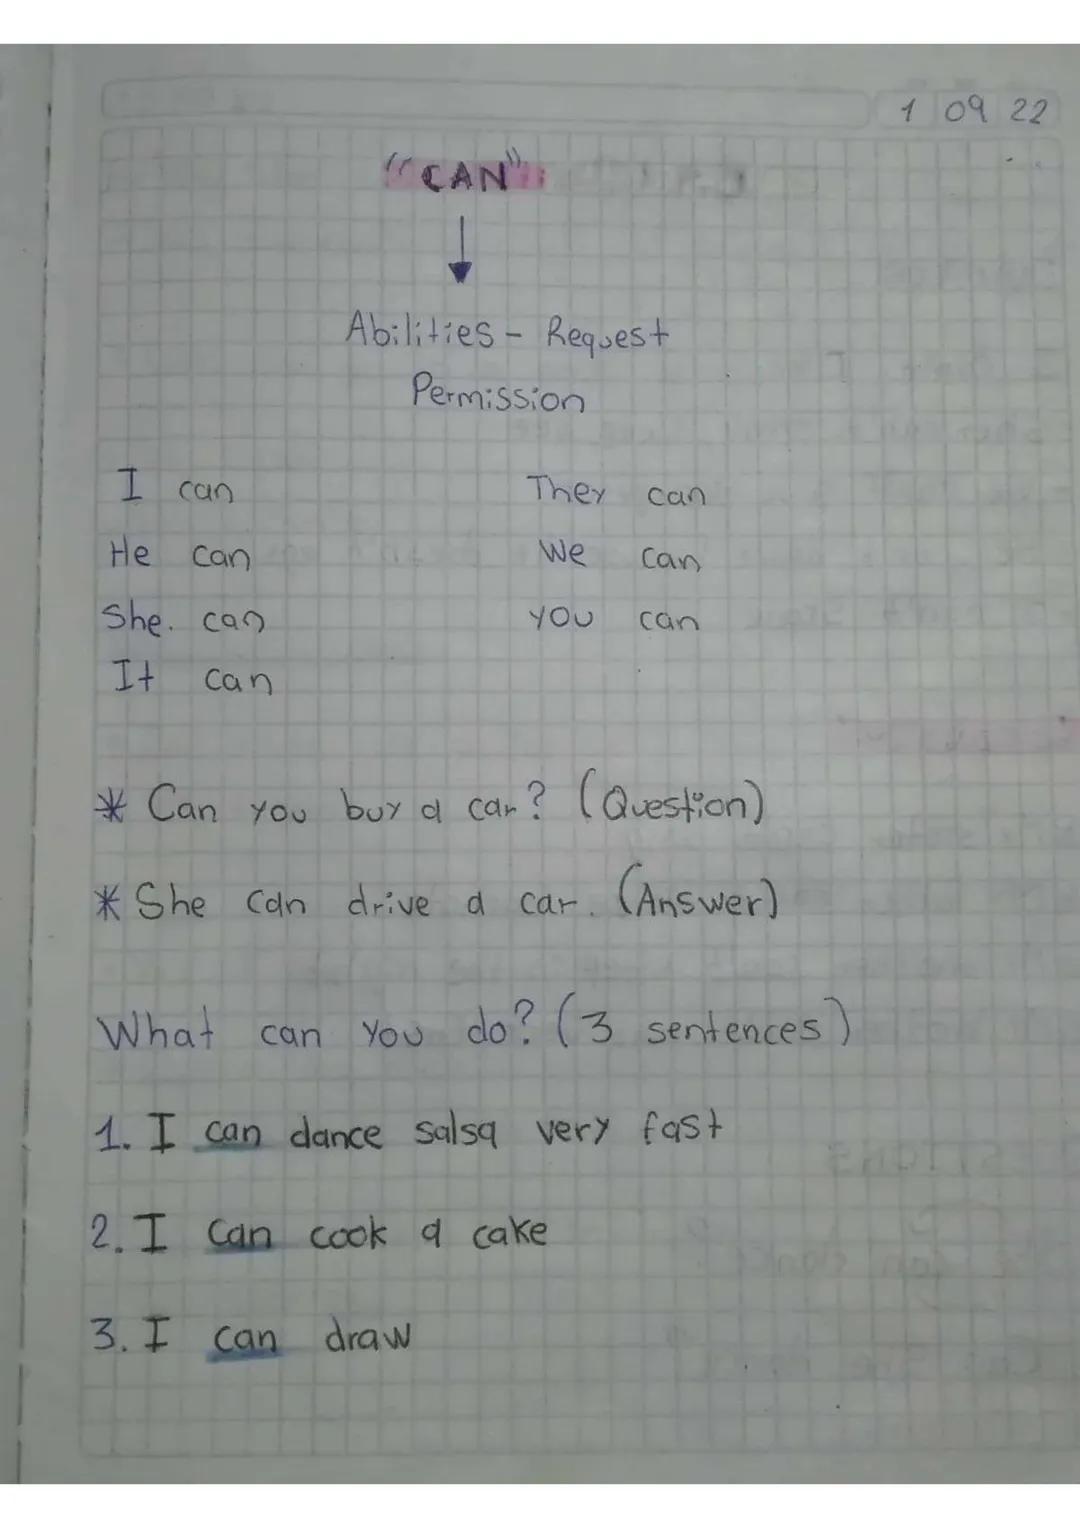 1 09 22
"CAN"
Abilities - Request
Permission
I can They can
He can We can
She. can you can
It can
* Can you buy a car? (Question)
* She can drive a car. (Answer)
What can you do? (3 sentences)
1. I can dance salsa very fast
2. I can cook a cake
3. I can draw